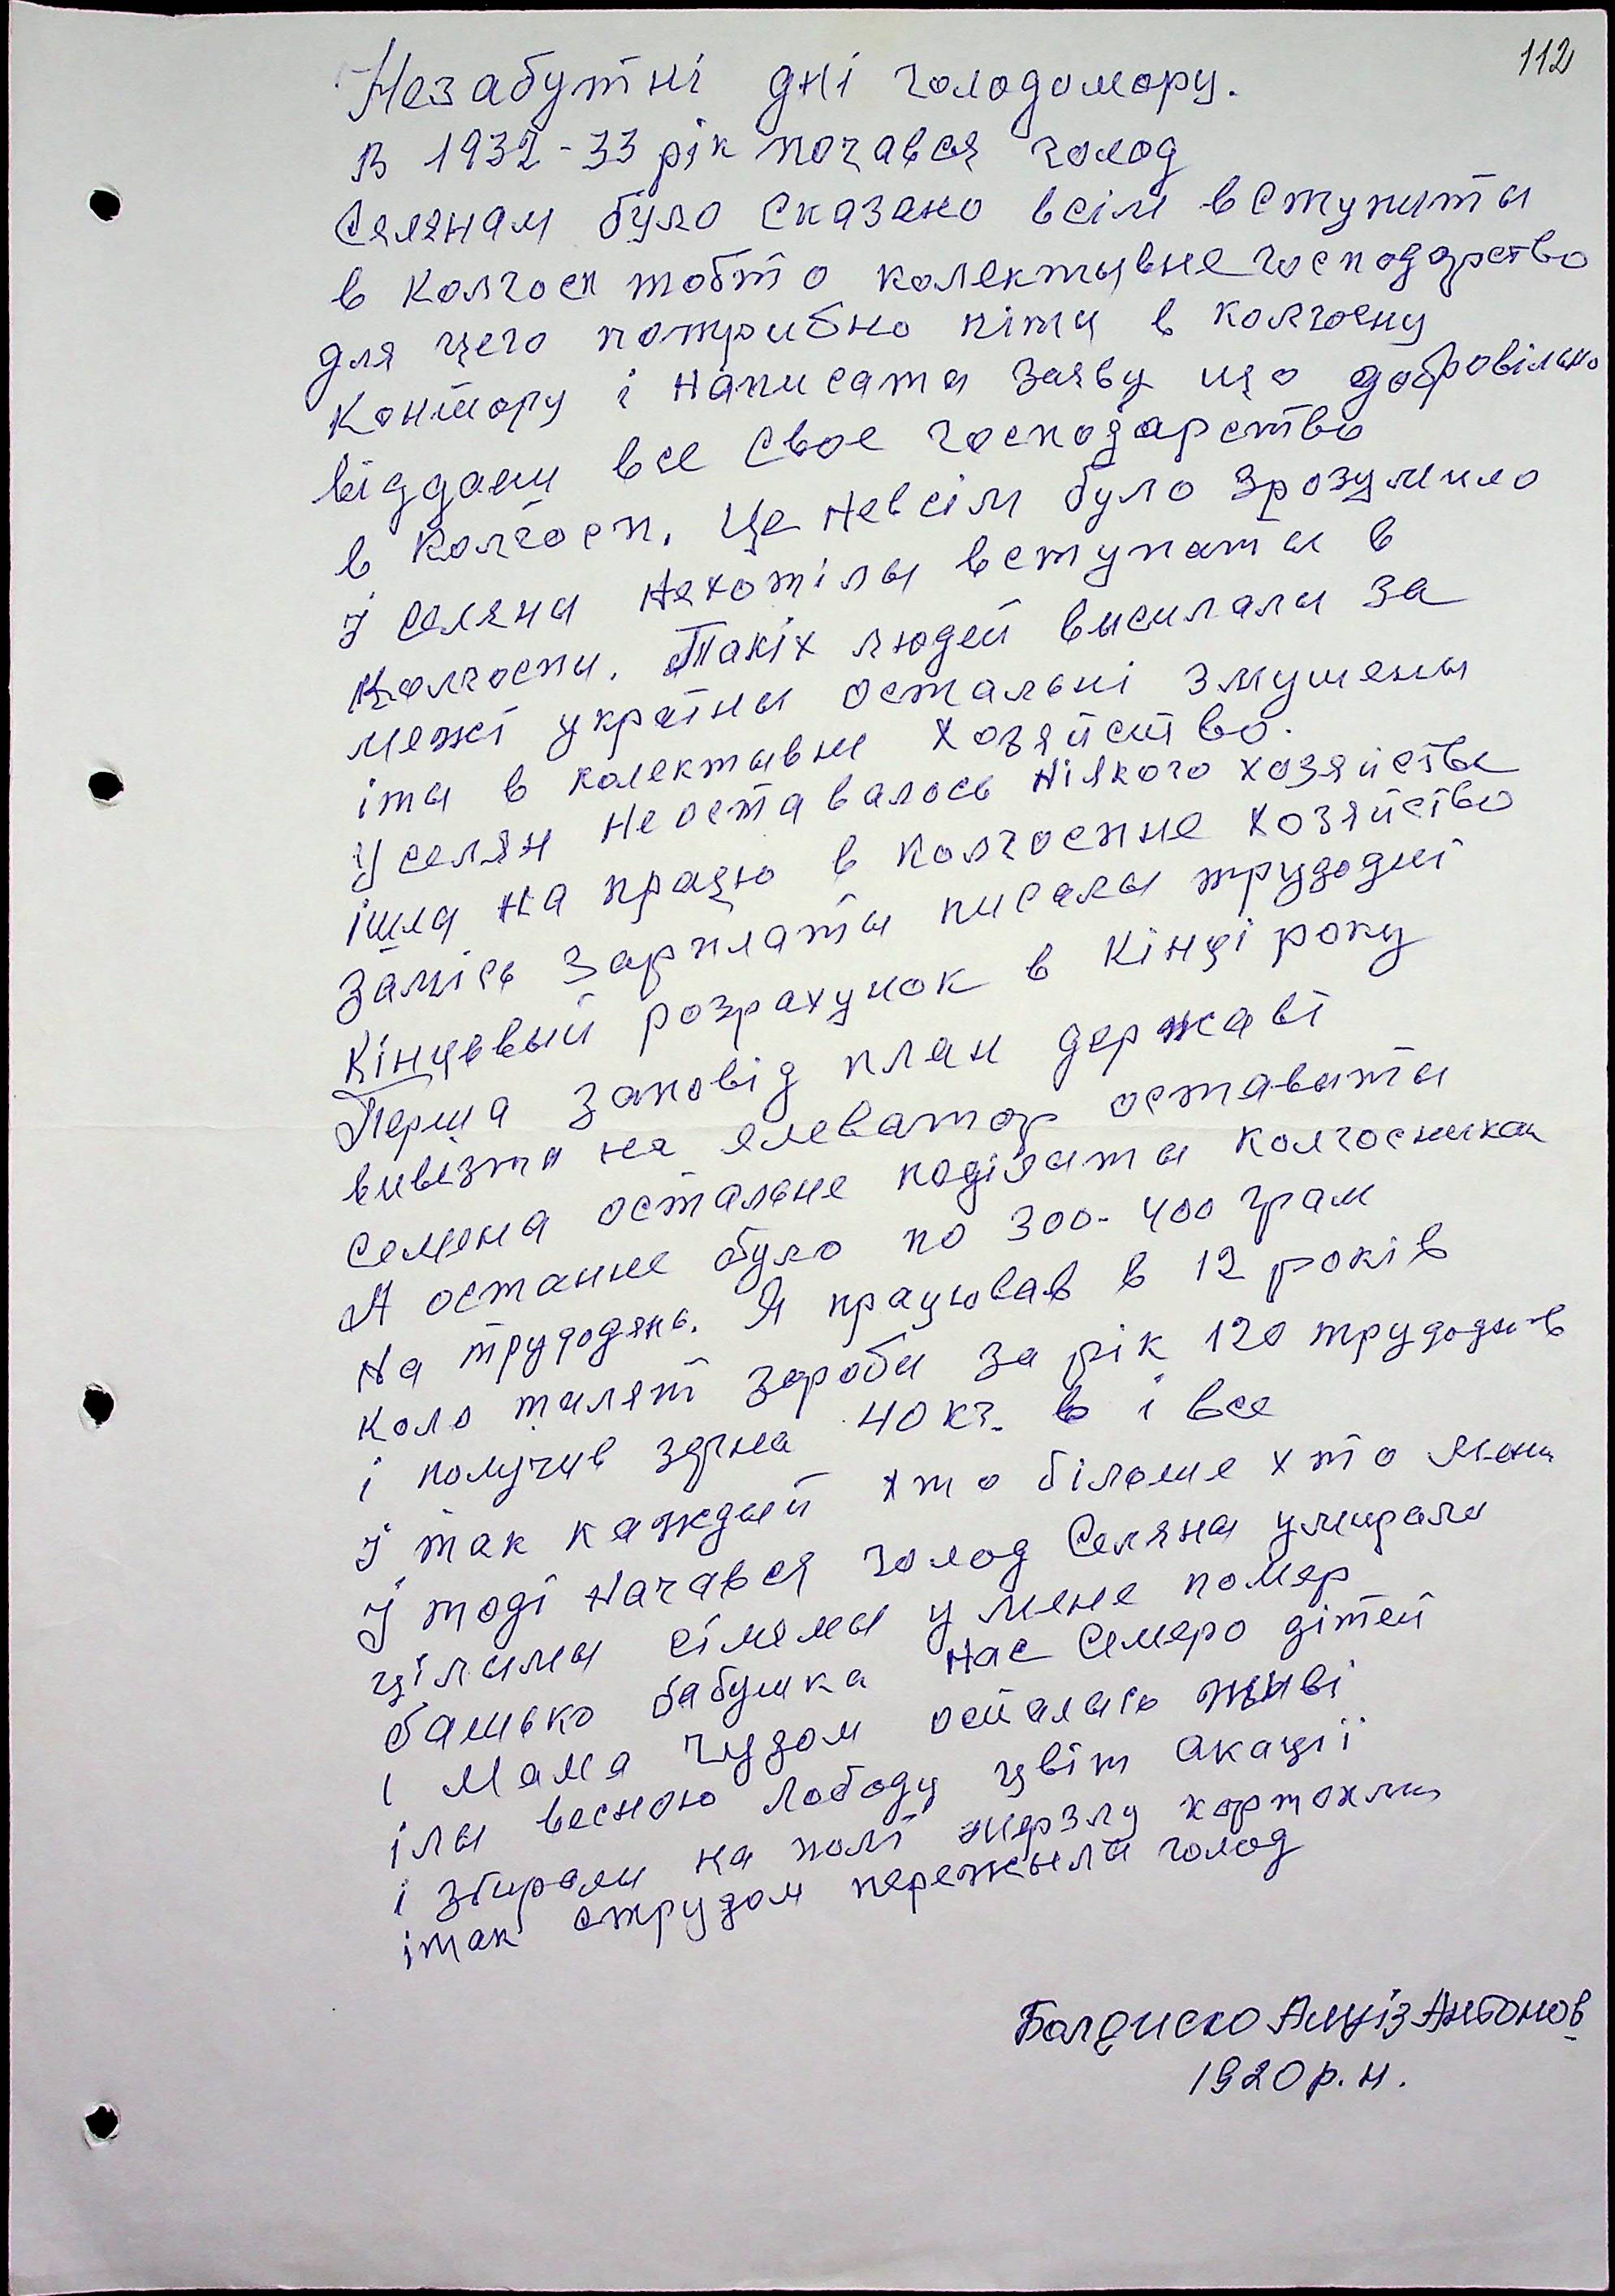 112
Незабутні дні голодомору.
В 1932-33 рік почався голод
Селянам було сказано всім вступиты
в колгосп тобто колектывне господарство
для цего потрибно піты в колгоспу
контору і написаты заяву що добровільно
віддаєш все своє господарство
в колгосп. Це невсім було зрозумило
І селяны нехотілы вступаты в
колгоспи. Такіх людей висилалы за
межі україны остальні змушены
іты в колективне хозяйство.
У селян неоставалось ніякого хозяйства
ішлы на працю в колгоспне хозяйство
Замісь зарплаты писалы трудодні
Кінцевый розрахунок в кінці року
Перша заповід план державі
вивізты на елеватор оставыты
семена остальне поділыты колгосныкам
А останне було по 300-400 грам
на трудодень. Я працював в 12 років
коло телят зароби за рік 120 трудоднів
і получив зерна 40 кг. і все
І так каждый хто більше хто менш
І тоді начався голод Селяны умирали
цілымы сімямы у мене помер
батько бабушка нас семеро дітей
і мама чудом остались жыві
ілы весною лободу цвіт акації
і збиралы на полі мерзлу картохлю
ітак струдом пережылы голод
Антонов
1920 р.н.